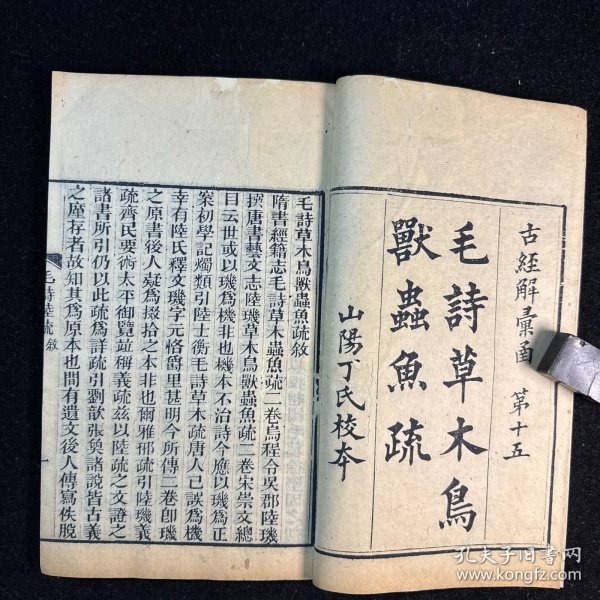 古經解彙函 第十五
毛詩草木鳥
獸蟲魚疏
山陽丁氏校本
毛詩草木鳥獸蟲魚疏敘
隋書經籍志毛詩草木蟲魚疏二卷烏程令吳郡陸璣
撰唐書藝文志陸璣草木鳥獸蟲魚疏二卷宋崇文總
目云世或以璣爲機非也機本不治詩今應以璣爲正
案初學記燭類引陸士衡毛詩草木疏唐人已誤爲機
幸有陸氏釋文璣字元恪爵里甚明今所傳二卷卽璣
之原書後人疑爲掇拾之本非也爾雅邢疏引陸璣義
疏齊民要術太平御覽竝稱義疏茲以陸疏之文證之
諸書所引仍以此疏爲詳疏引劉歆張奐諸說皆古義
之廑存者故知其爲原本也間有遺文後人傳寫佚脫
毛詩陸疏敘
一
孔夫子旧书网
www.kongfz.com